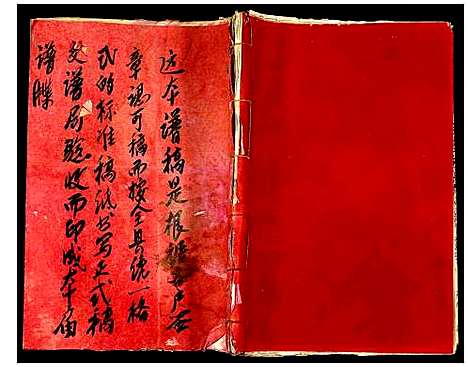 这本谱稿是根据户名
章认可稿而按全县统一格
式的标准稿纸书写正式稿
交谱局验收而印成本角
谱牒